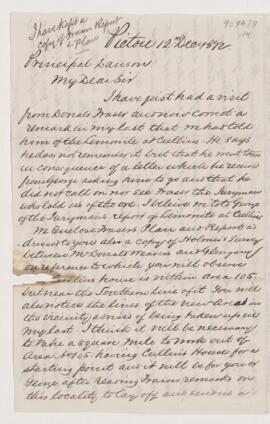 I have kept a
copy of Frasers Report
& Plan
Pictou 12 Dec 1872
Principal Dawson
My Dear Sir
I have just had a visit
from Donald Fraser and now correct a
remark in my last that we had told
him of the Limonite at Cullins. He says
he does not remember it but that he went there
in consequence of a letter which he received
from George asking him to go and that he
did not call on nor see Fraser the Juryman
who told us of the ore. I believe we told George
of the Juryman's report of Limonite at Cullins
We Enclose Frasers Plan and Report as
also a copy of Holmes's Survey
between McDonald Weaver and Glengarry
on reference to which you will observe
house is within Area 105
but near the Southern line of it. You will
also notice the lines of the new Area in
the vicinity advised of being taken up in
my last. I think it will be necessary
to take a square Mile to Work out of
Area No 105. having Cullins House for a
starting point and it will be for you or
George after reading Frasers remarks on
this locality to lay off and send us a